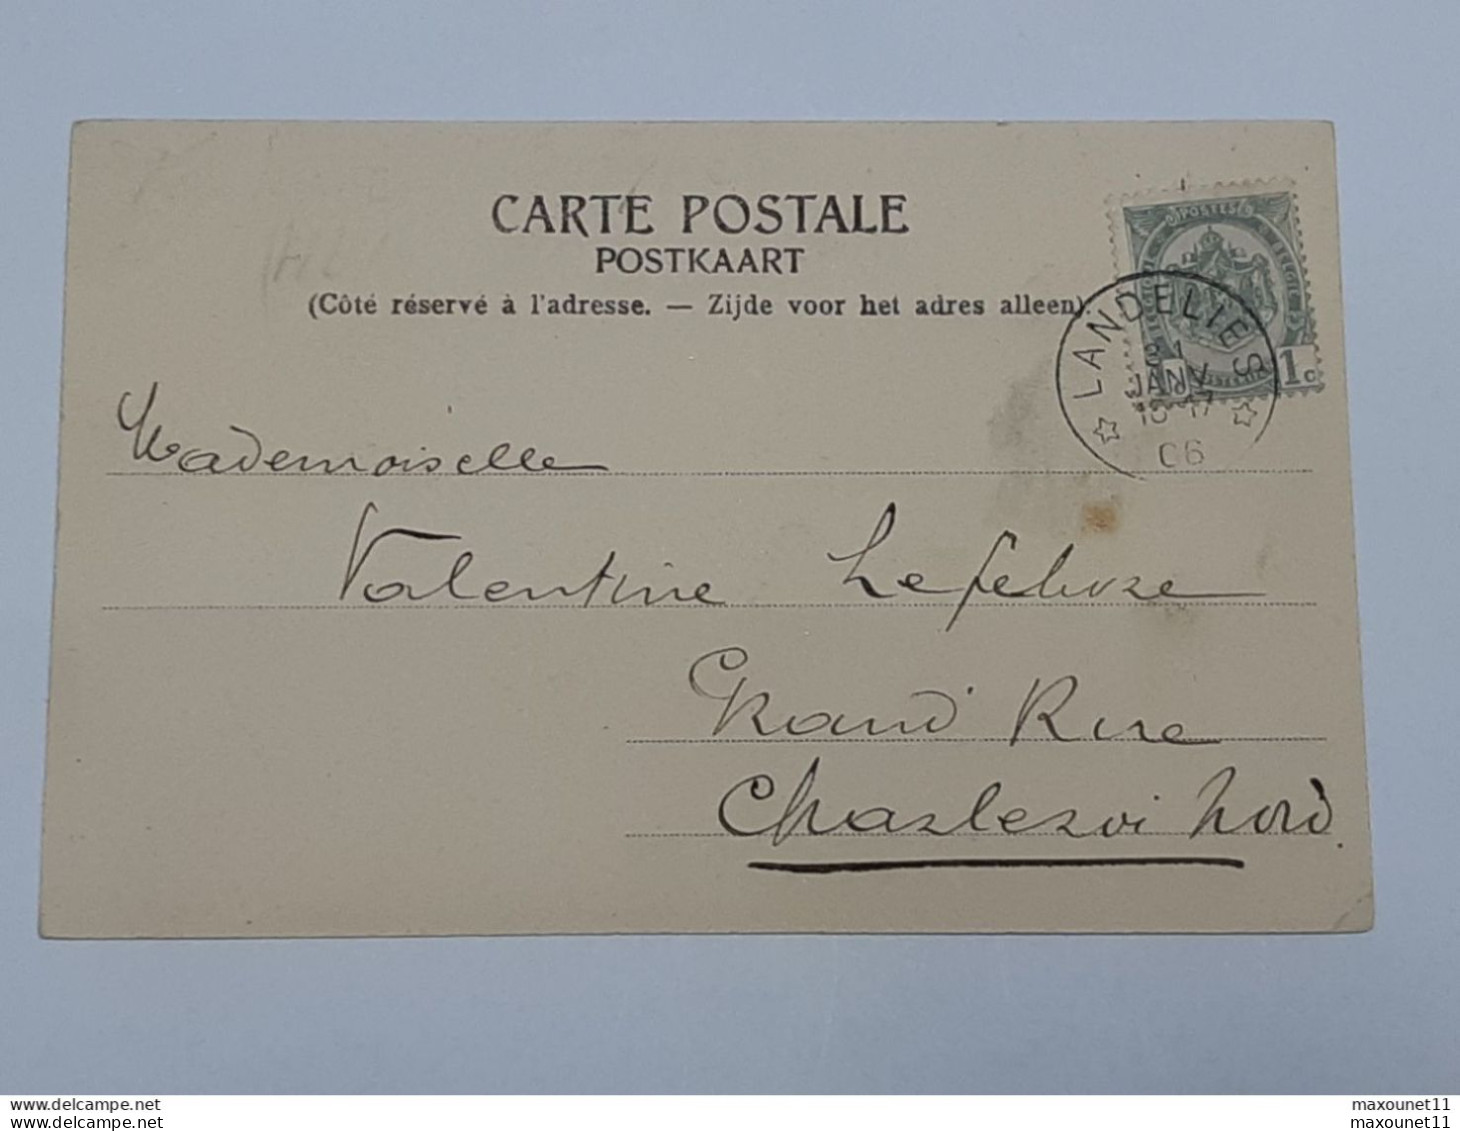 CARTE POSTALE
POSTKAART
(Côté réservé à l'adresse. — Zijde voor het adres alleen).
POSTES
BELGIQUE
1c
LANDELIES
31
JANV
16-17
06
Mademoiselle
Valentine Lefebvre
Grand Rue
Charleroi Nord
maxounet11
maxounet11
maxounet11
maxounet11